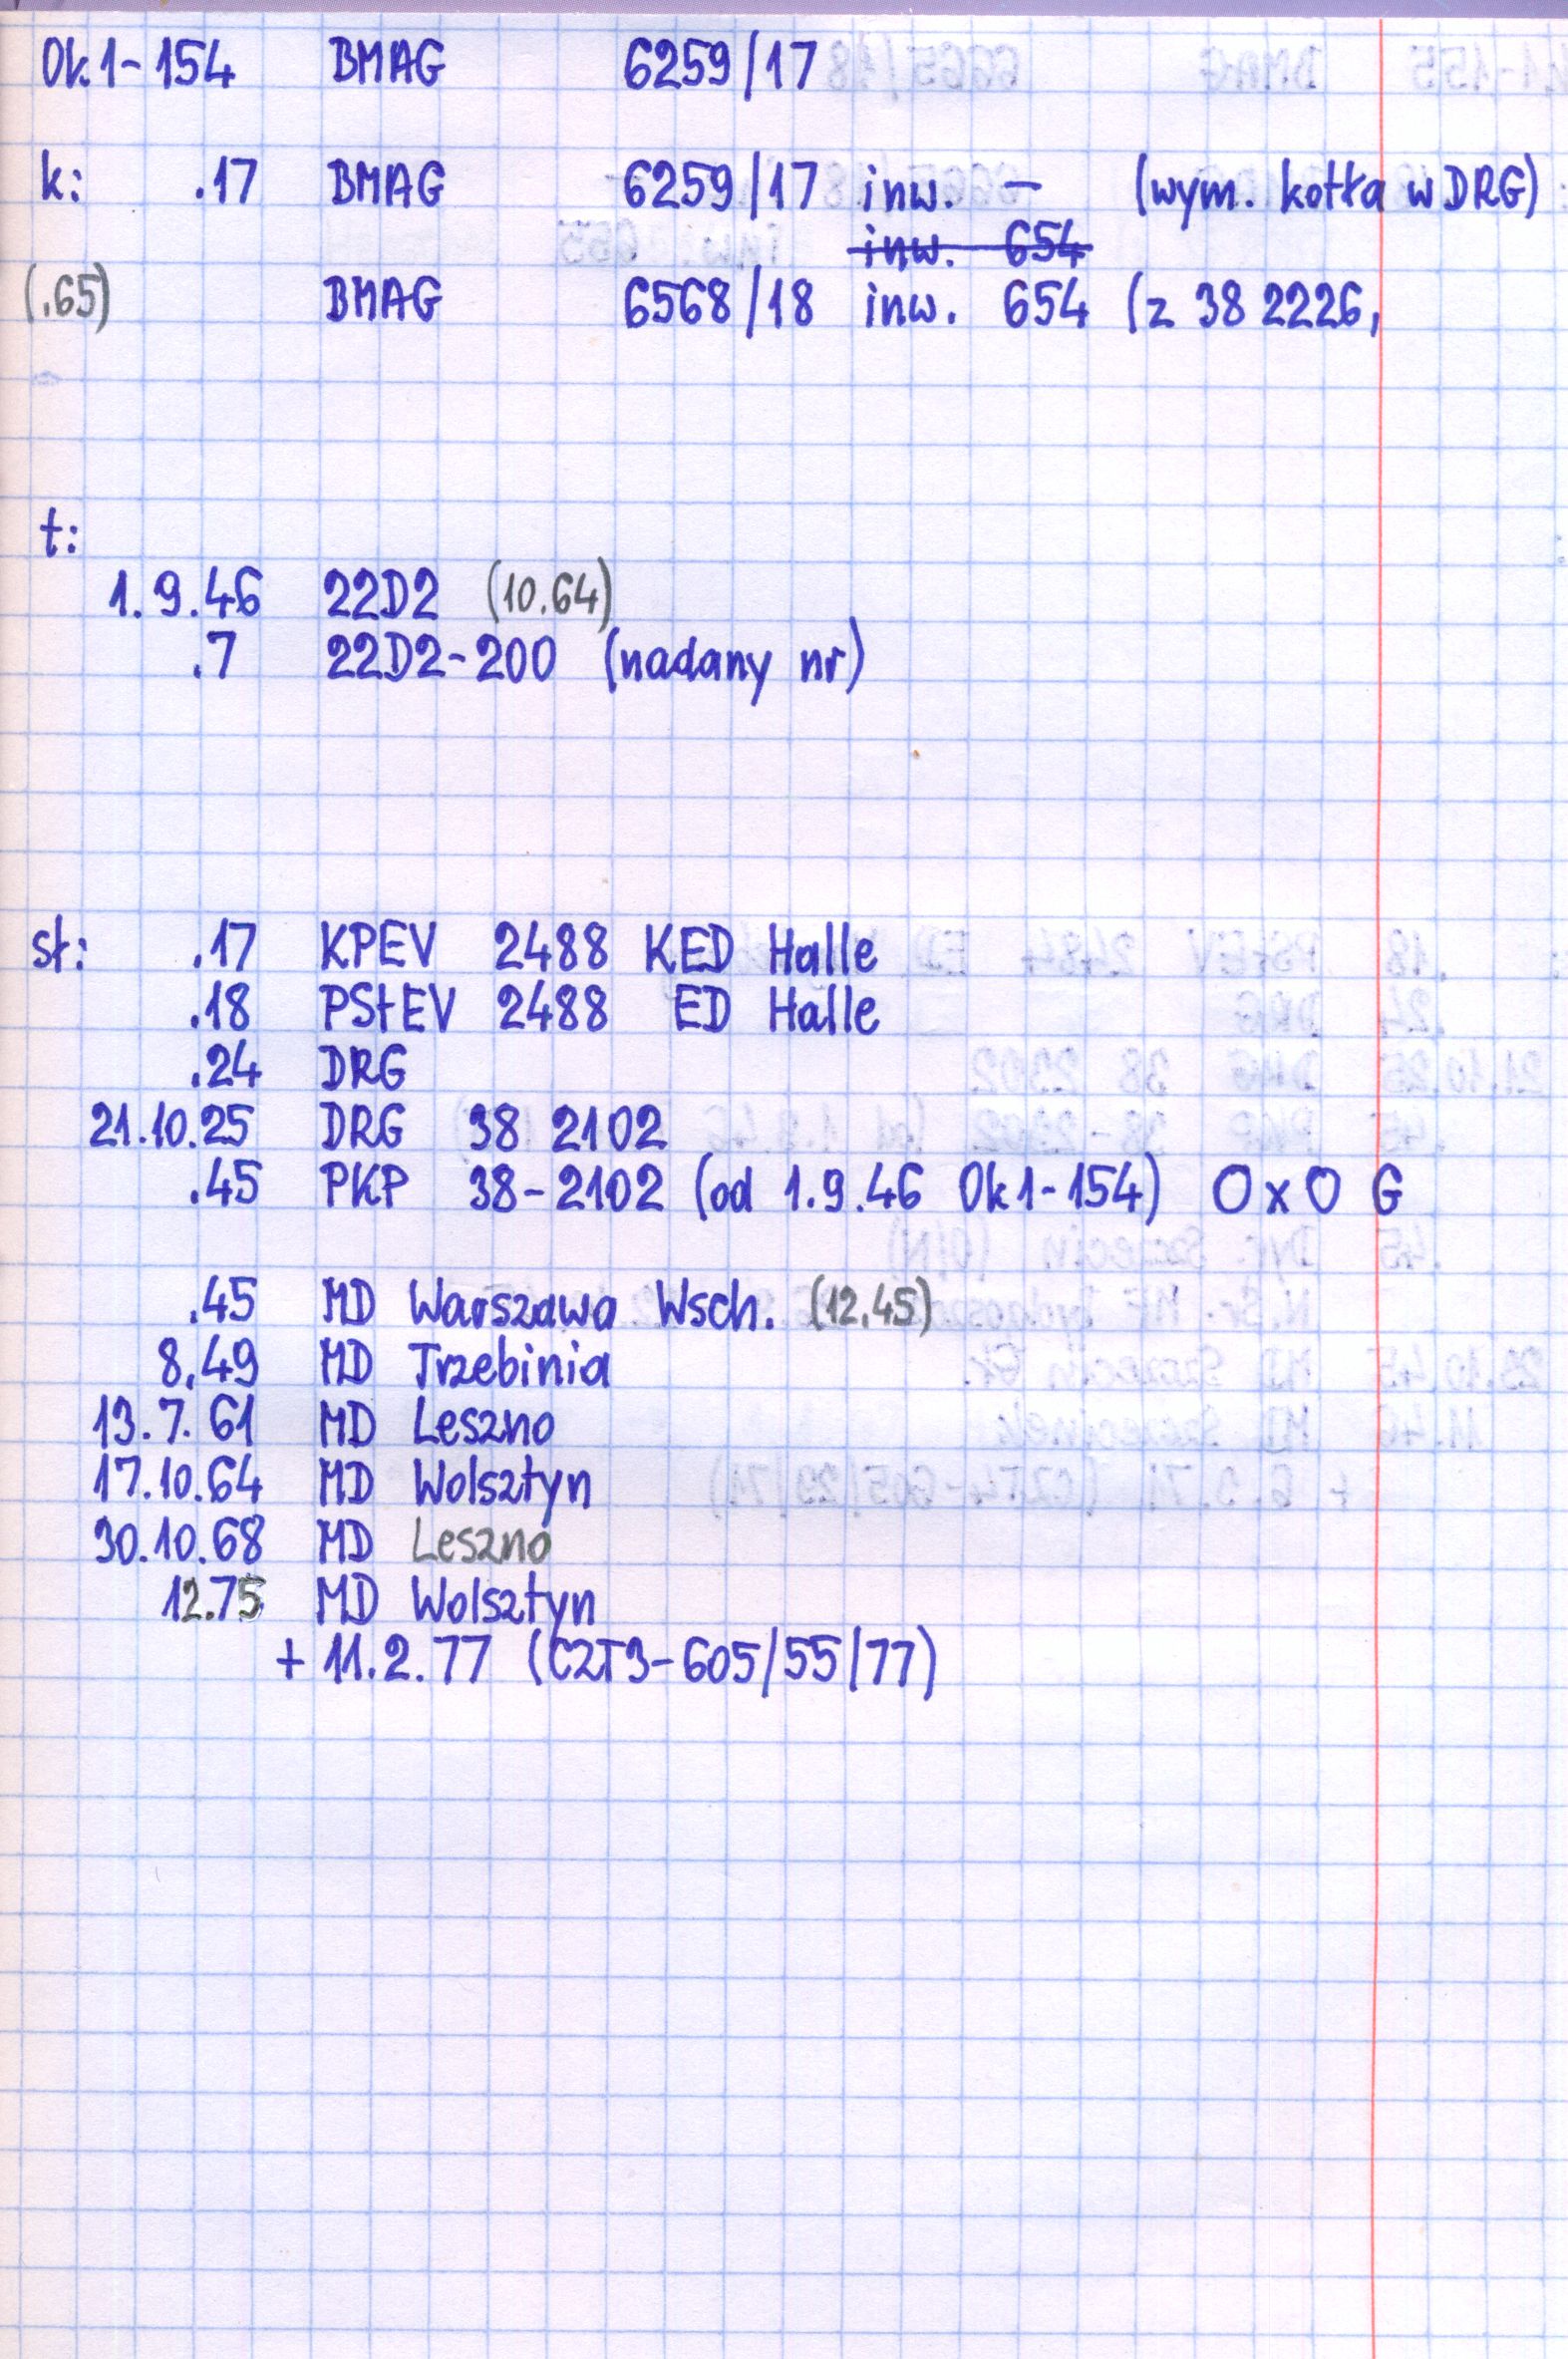 Ok1-154 BMAG 6259/17
k: .17 BMAG 6259/17 inw. – (wym. kotła w DRG)
inw. 654
(.65) BMAG 6568/18 inw. 654 (z 38 2226,
t:
1.9.46 22D2 (10.64)
.7 22D2-200 (nadany nr)
sł: .17 KPEV 2488 KED Halle
.18 PStEV 2488 ED Halle
.24 DRG
21.10.25 DRG 38 2102
.45 PKP 38-2102 (od 1.9.46 Ok1-154) OxO G
.45 MD Warszawa Wsch. (12.45)
8.49 MD Trzebinia
13.7.61 MD Leszno
17.10.64 MD Wolsztyn
30.10.68 MD Leszno
12.75 MD Wolsztyn
+ 11.2.77 (CZT3-605/55/77)